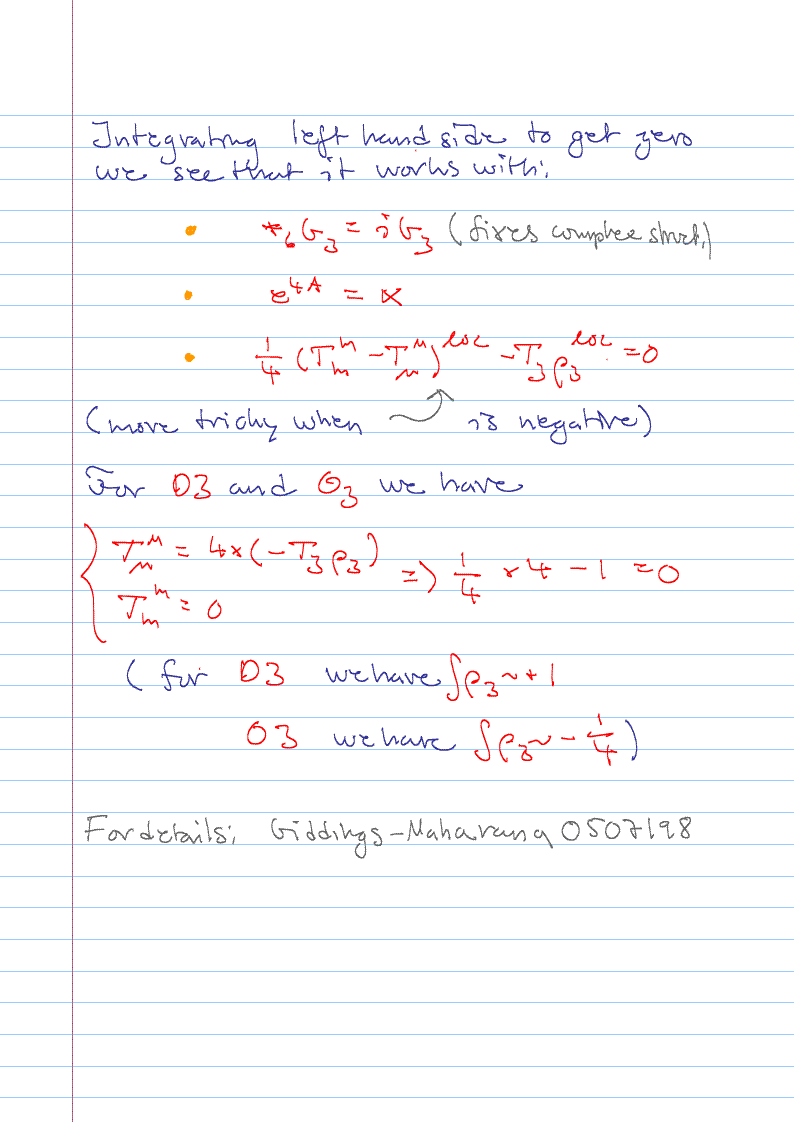 Integrating left hand side to get zero
we see that it works with:
• *₆G₃ = iG₃ (fixes complex struct.)
• e^{4A} = α
• 1/4 (T^m_m − T^μ_μ)^{loc} − T₃ρ₃^{loc} = 0
(more tricky when is negative)
For D3 and O3 we have
{ T^μ_μ = 4×(−T₃ρ₃) => 1/4 × 4 − 1 = 0
T^m_m = 0
(for D3 we have ∫ρ₃ ~ +1
O3 we have ∫ρ₃ ~ −1/4)
For details: Giddings-Maharana 0507198